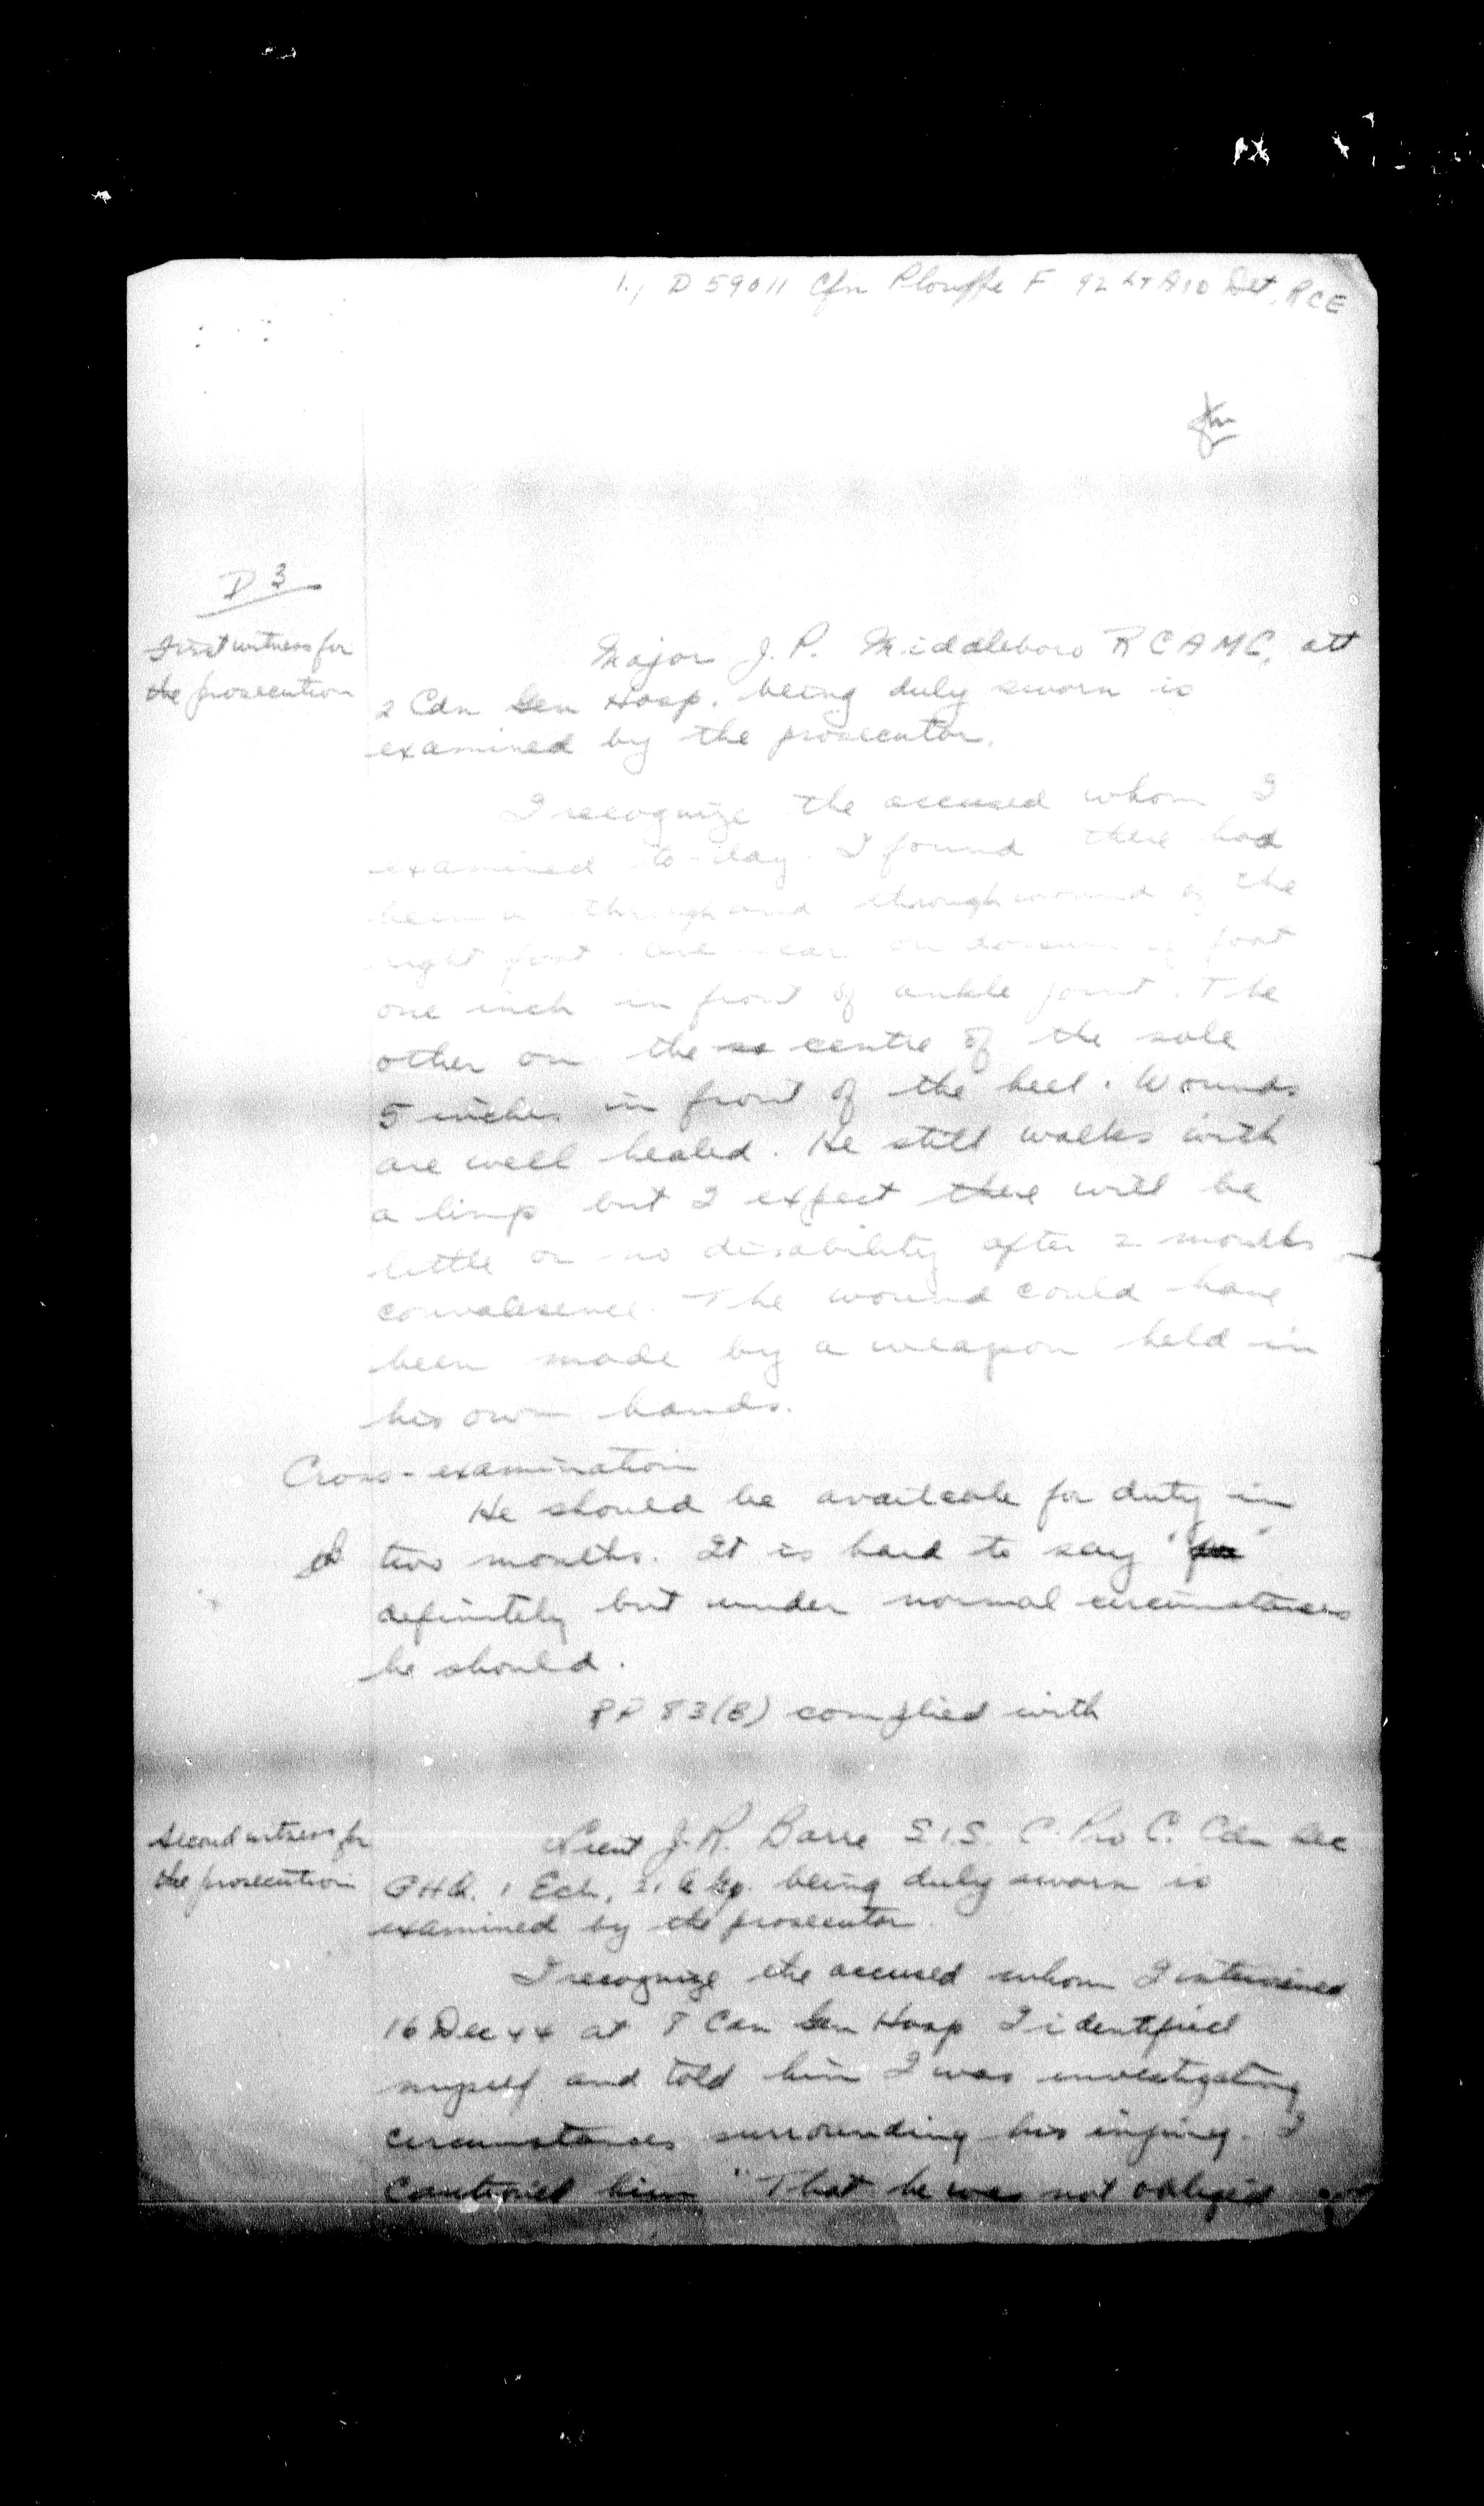 1., D 59011 Cfn Plouffe F. 92 Lt Aid Det. RCE
D 3
First witness for
the prosecution
Major J. P. Middleboro RCAMC, att
2 Cdn Gen Hosp. being duly sworn is
examined by the prosecutor.
I recognize the accused whom I
examined to-day. I found there had
been a through and through wound of the
right foot. One scar on dorsum of foot
one inch in front of ankle joint. The
other on the centre of the sole
5 inches in front of the heel. Wounds
are well healed. He still walks with
a limp but I expect there will be
little or no disability after 2 months
convalesence. The wound could have
been made by a weapon held in
his own hands.
Cross-examination
He should be available for duty in
two months. It is hard to say
definitely but under normal circumstances
he should.
RP 83(B) complied with
Second witness for
the prosecution
Lieut J. R. Barre S.I.S. C. Pro C. Cdn Sec
GHQ. 1 Ech, 21 A Gp. being duly sworn is
examined by the prosecutor.
I recognize the accused whom I interviewed
16 Dec 44 at 8 Can Gen Hosp I identified
myself and told him I was investigating
circumstances surrounding his injury. I
cautioned him "That he was not obliged